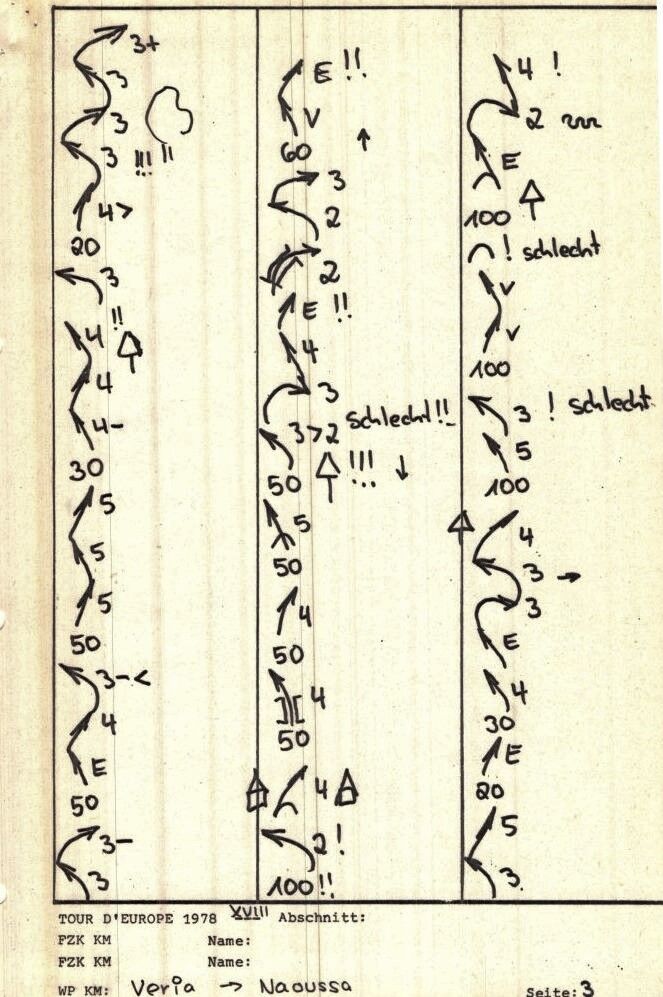 3+
3
3
3 !!! !!
4>
20
3
!!
4
4
4-
30
5
5
5
50
3-<
4
E
50
3-
3
E !!
V
60 ↑
3
2
2
E !!
4
3
3>2 schlecht!!
50 !!! ↓
5
50
4
50
4
50
4
2!
100!!
4 !
2
E
100
! schlecht
V
V
100
3 ! schlecht
5
100
4
3 →
3
E
4
30
E
20
5
3
TOUR D'EUROPE 1978 XVIII Abschnitt:
FZK KM Name:
FZK KM Name:
WP KM: Veria → Naoussa Seite: 3